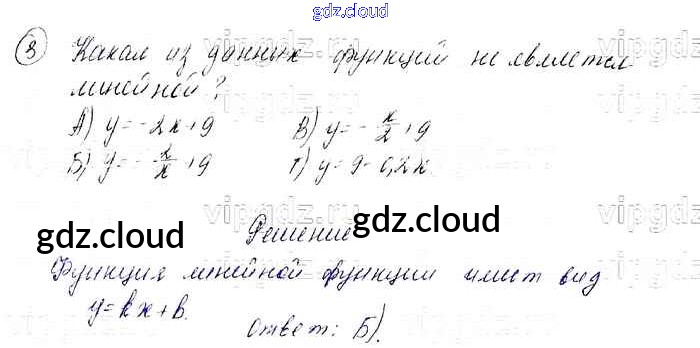 gdz.cloud
8 Какая из данных функций не является
линейной?
А) y = -2x+9 В) y = -x/2+9
Б) y = -2/x+9 Г) y = 9-0,2x.
Решение
gdz.cloud gdz.cloud
Функция линейной функции имеет вид
y = kx + b.
Ответ: Б).